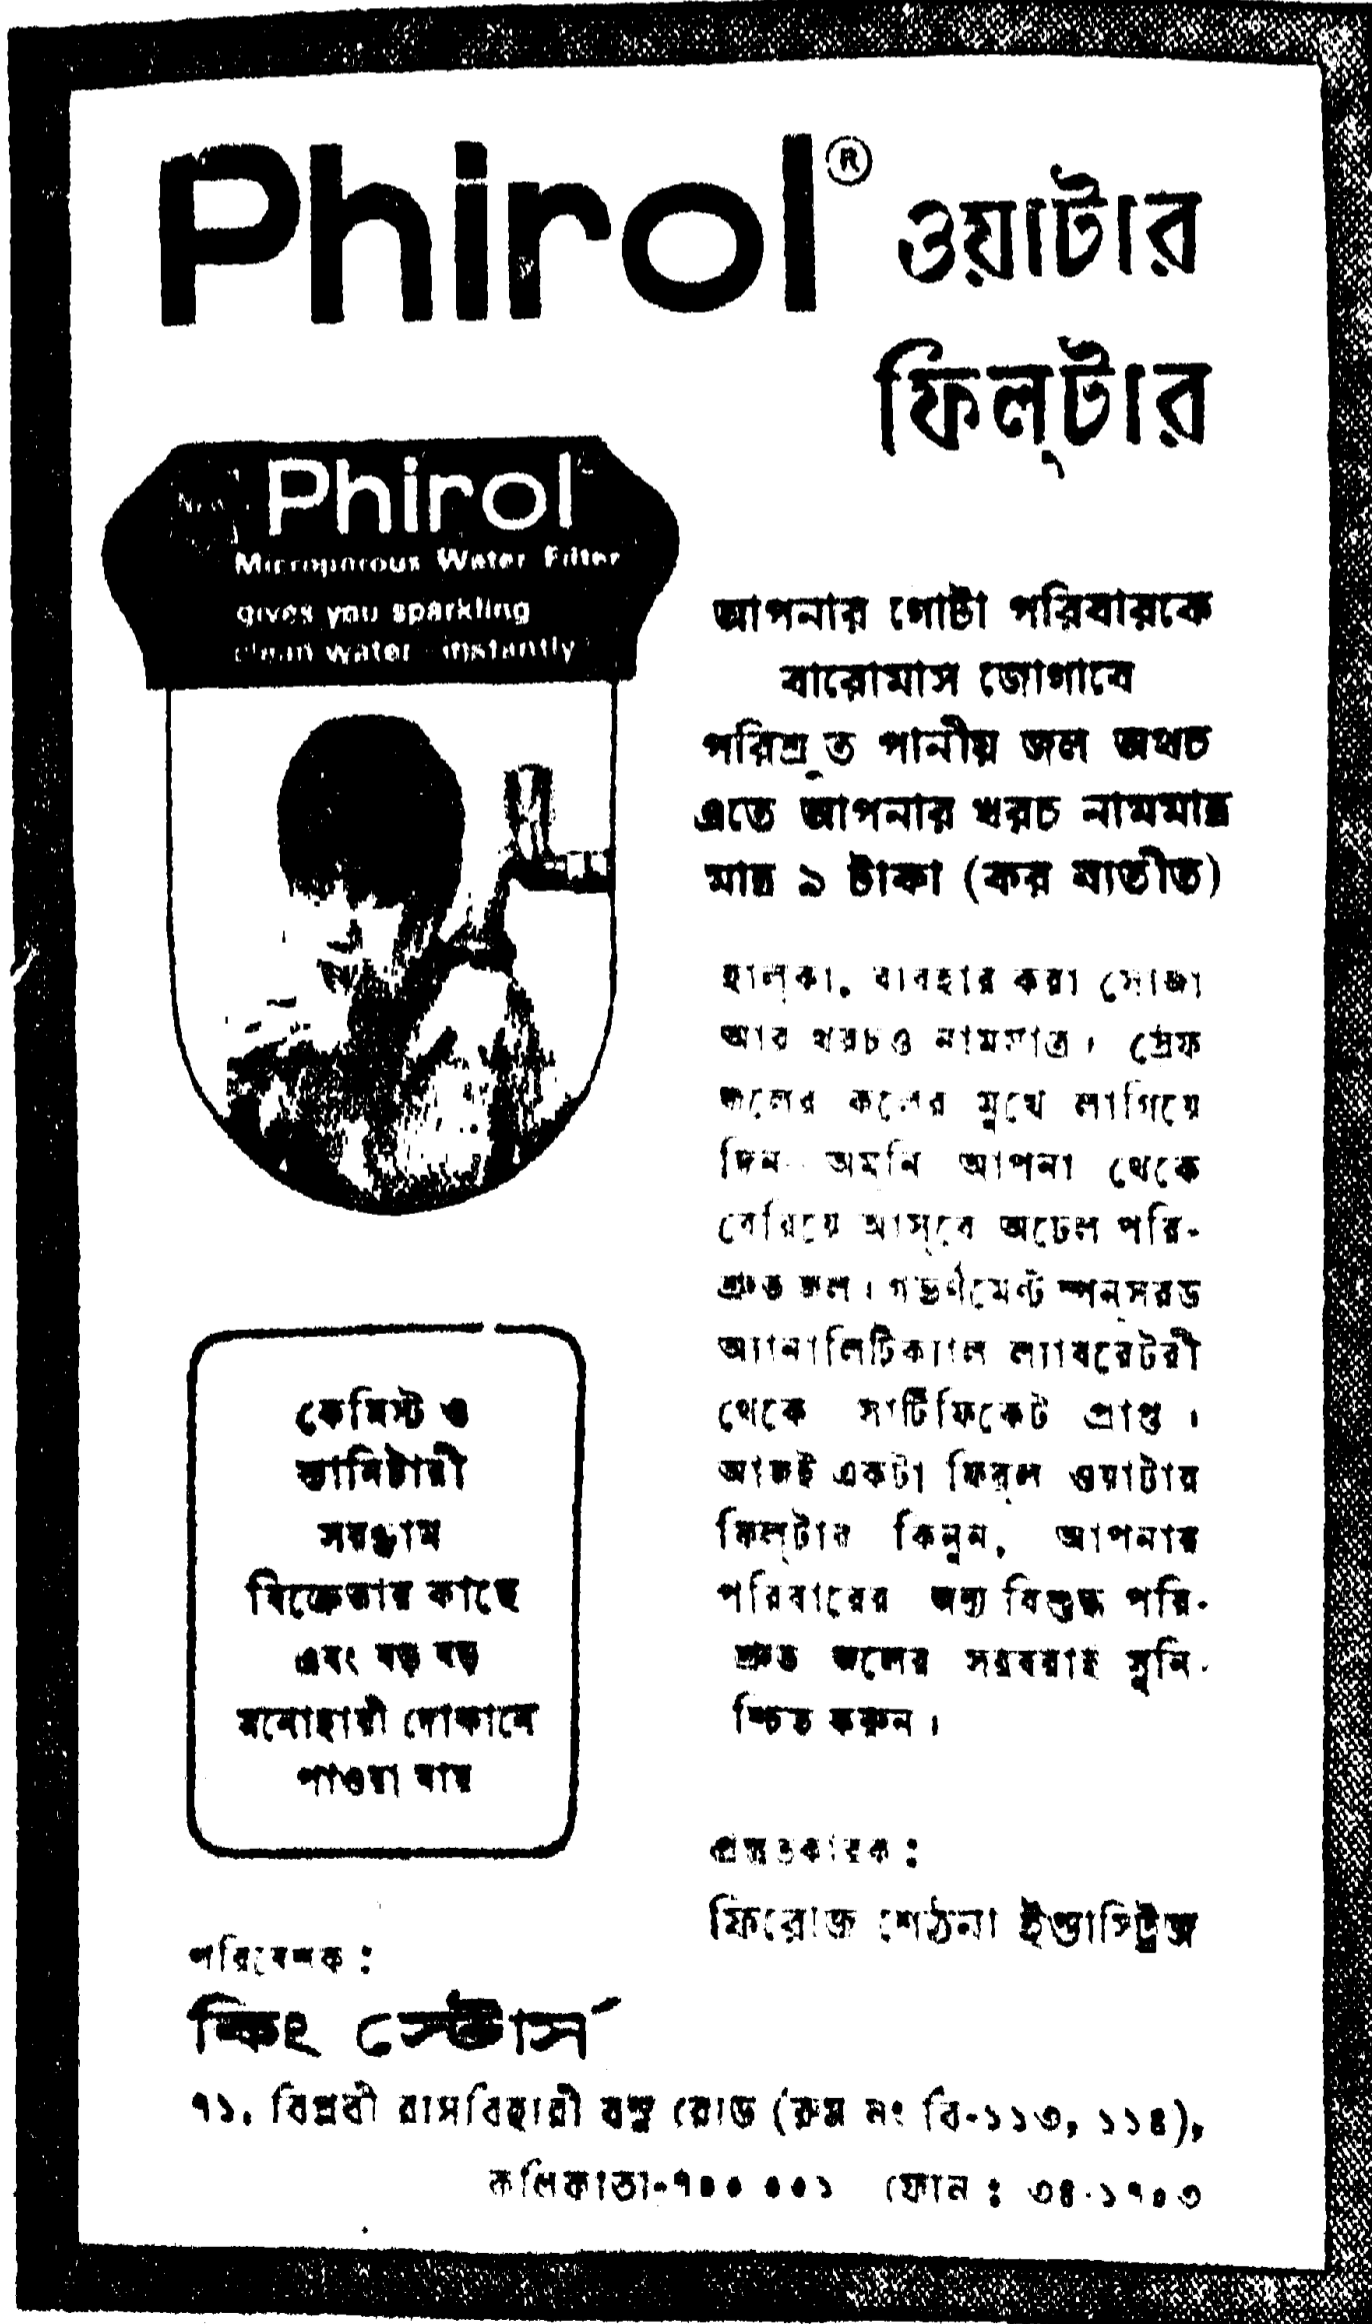 Phirol® ওয়াটার
ফিল্টার
Phirol
Microporous Water Filter
gives you sparkling
clean water instantly
আপনার গোটা পরিবারকে
বারোমাস জোগাবে
পরিশ্রুত পানীয় জল অথচ
এতে আপনার খরচ নামমাত্র
মাত্র ৯ টাকা (কর ব্যতীত)
হাল্কা, ব্যবহার করা সোজা
আর খরচও নামমাত্র। স্রেফ
জলের কলের মুখে লাগিয়ে
দিন অমনি আপনা থেকে
বেরিয়ে আস্‌বে অঢেল পরি-
শ্রুত জল। গভর্ণমেন্ট স্পন্‌সরড
অ্যানালিটিক্যাল ল্যাবরেটরী
থেকে সার্টিফিকেট প্রাপ্ত।
আজই একটা ফিরল ওয়াটার
ফিল্টার কিনুন, আপনার
পরিবারের জন্য বিশুদ্ধ পরি-
শ্রুত জলের সরবরাহ সুনি-
শ্চিত করুন।
কেমিস্ট ও
স্যানিটারী
সরঞ্জাম
বিক্রেতার কাছে
এবং বড় বড়
মনোহারী দোকানে
পাওয়া যায়
প্রস্তুতকারক :
ফিরোজ শেঠনা ইণ্ডাস্ট্রিজ
পরিবেশক :
কিং স্টোর্স
৭১, বিপ্লবী রাসবিহারী বসু রোড (রুম নং বি-১১৩, ১১৪),
কলিকাতা-৭০০ ০০১ ফোন : ৩৪-১৭০৩